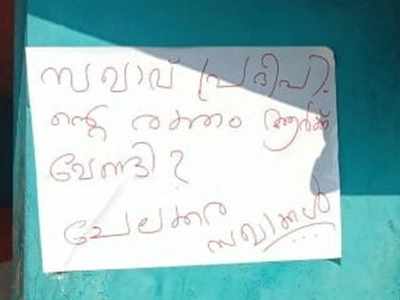 സഖാവ് പ്രദീപി.
ന്റെ രക്തം ആർക്ക്
വേണ്ടി?
ചേലക്കര
സഖാക്കൾ